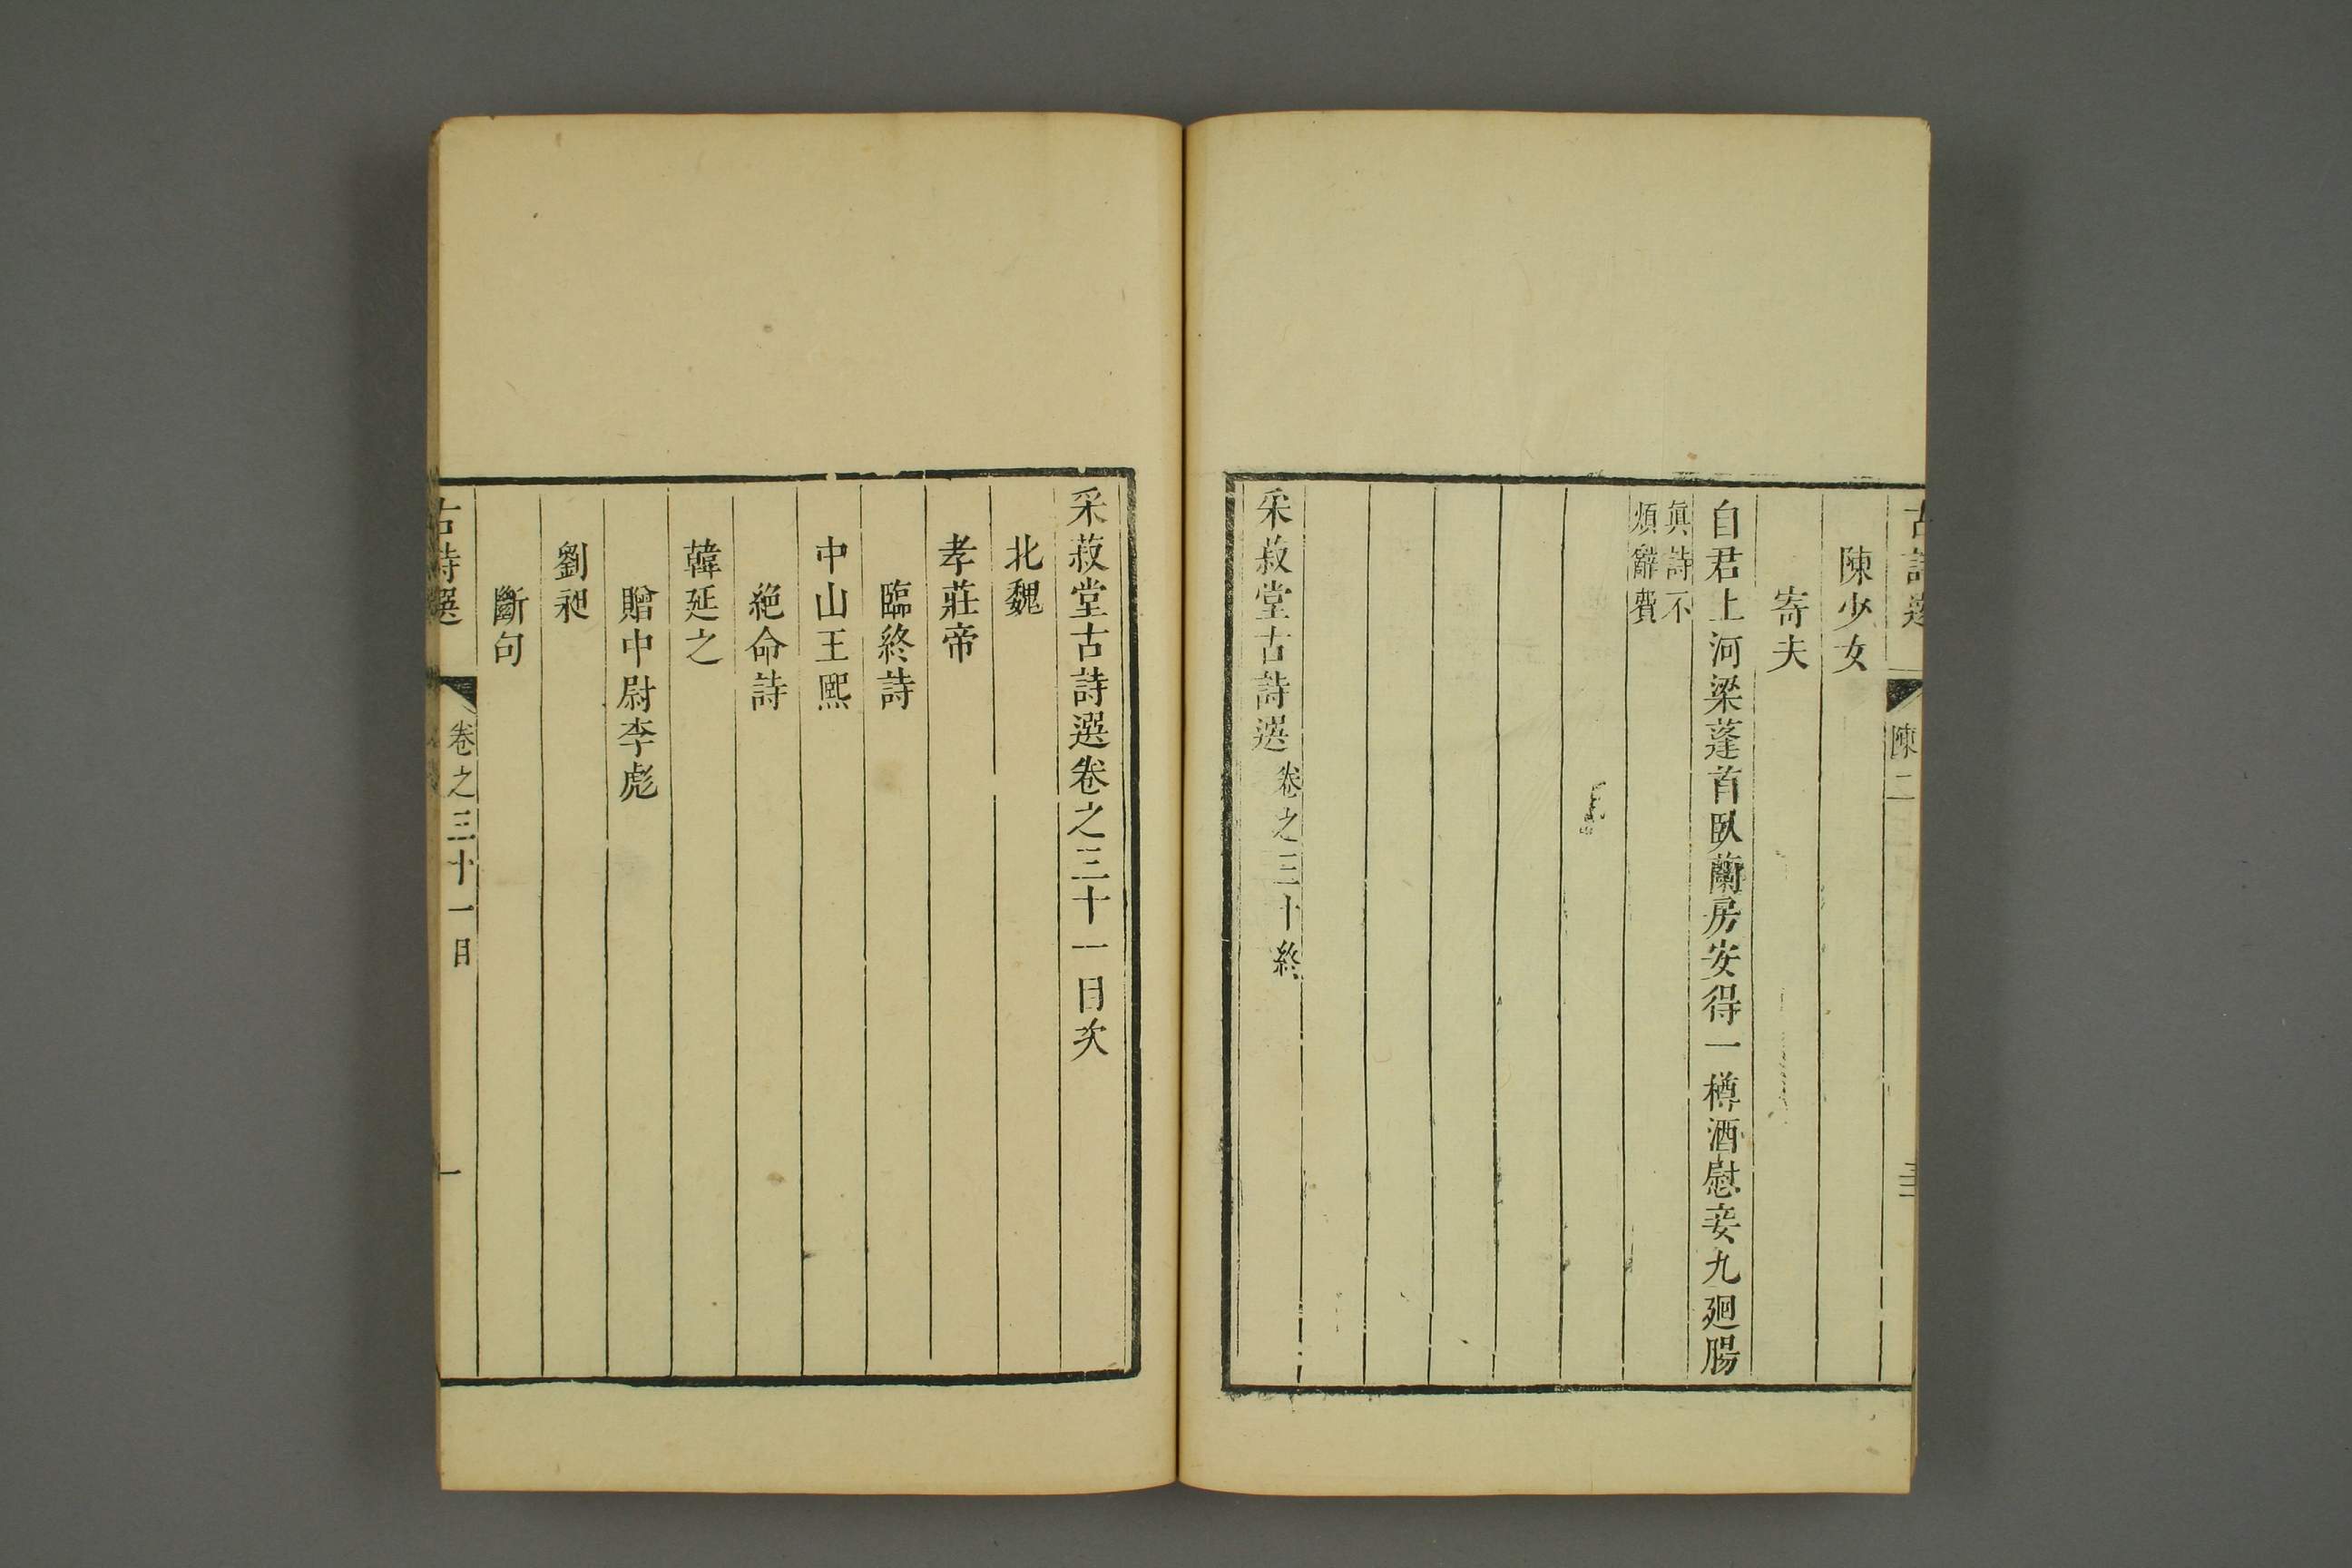 古詩選 陳二
陳少女
寄夫
自君上河梁蓬首臥蘭房安得一樽酒慰妾九廻腸
眞詩不
煩辭費
采菽堂古詩選 卷之三十終
采菽堂古詩選卷之三十一目次
北魏
孝莊帝
臨終詩
中山王熙
絕命詩
韓延之
贈中尉李彪
劉昶
斷句
古詩選 卷之三十一目 一